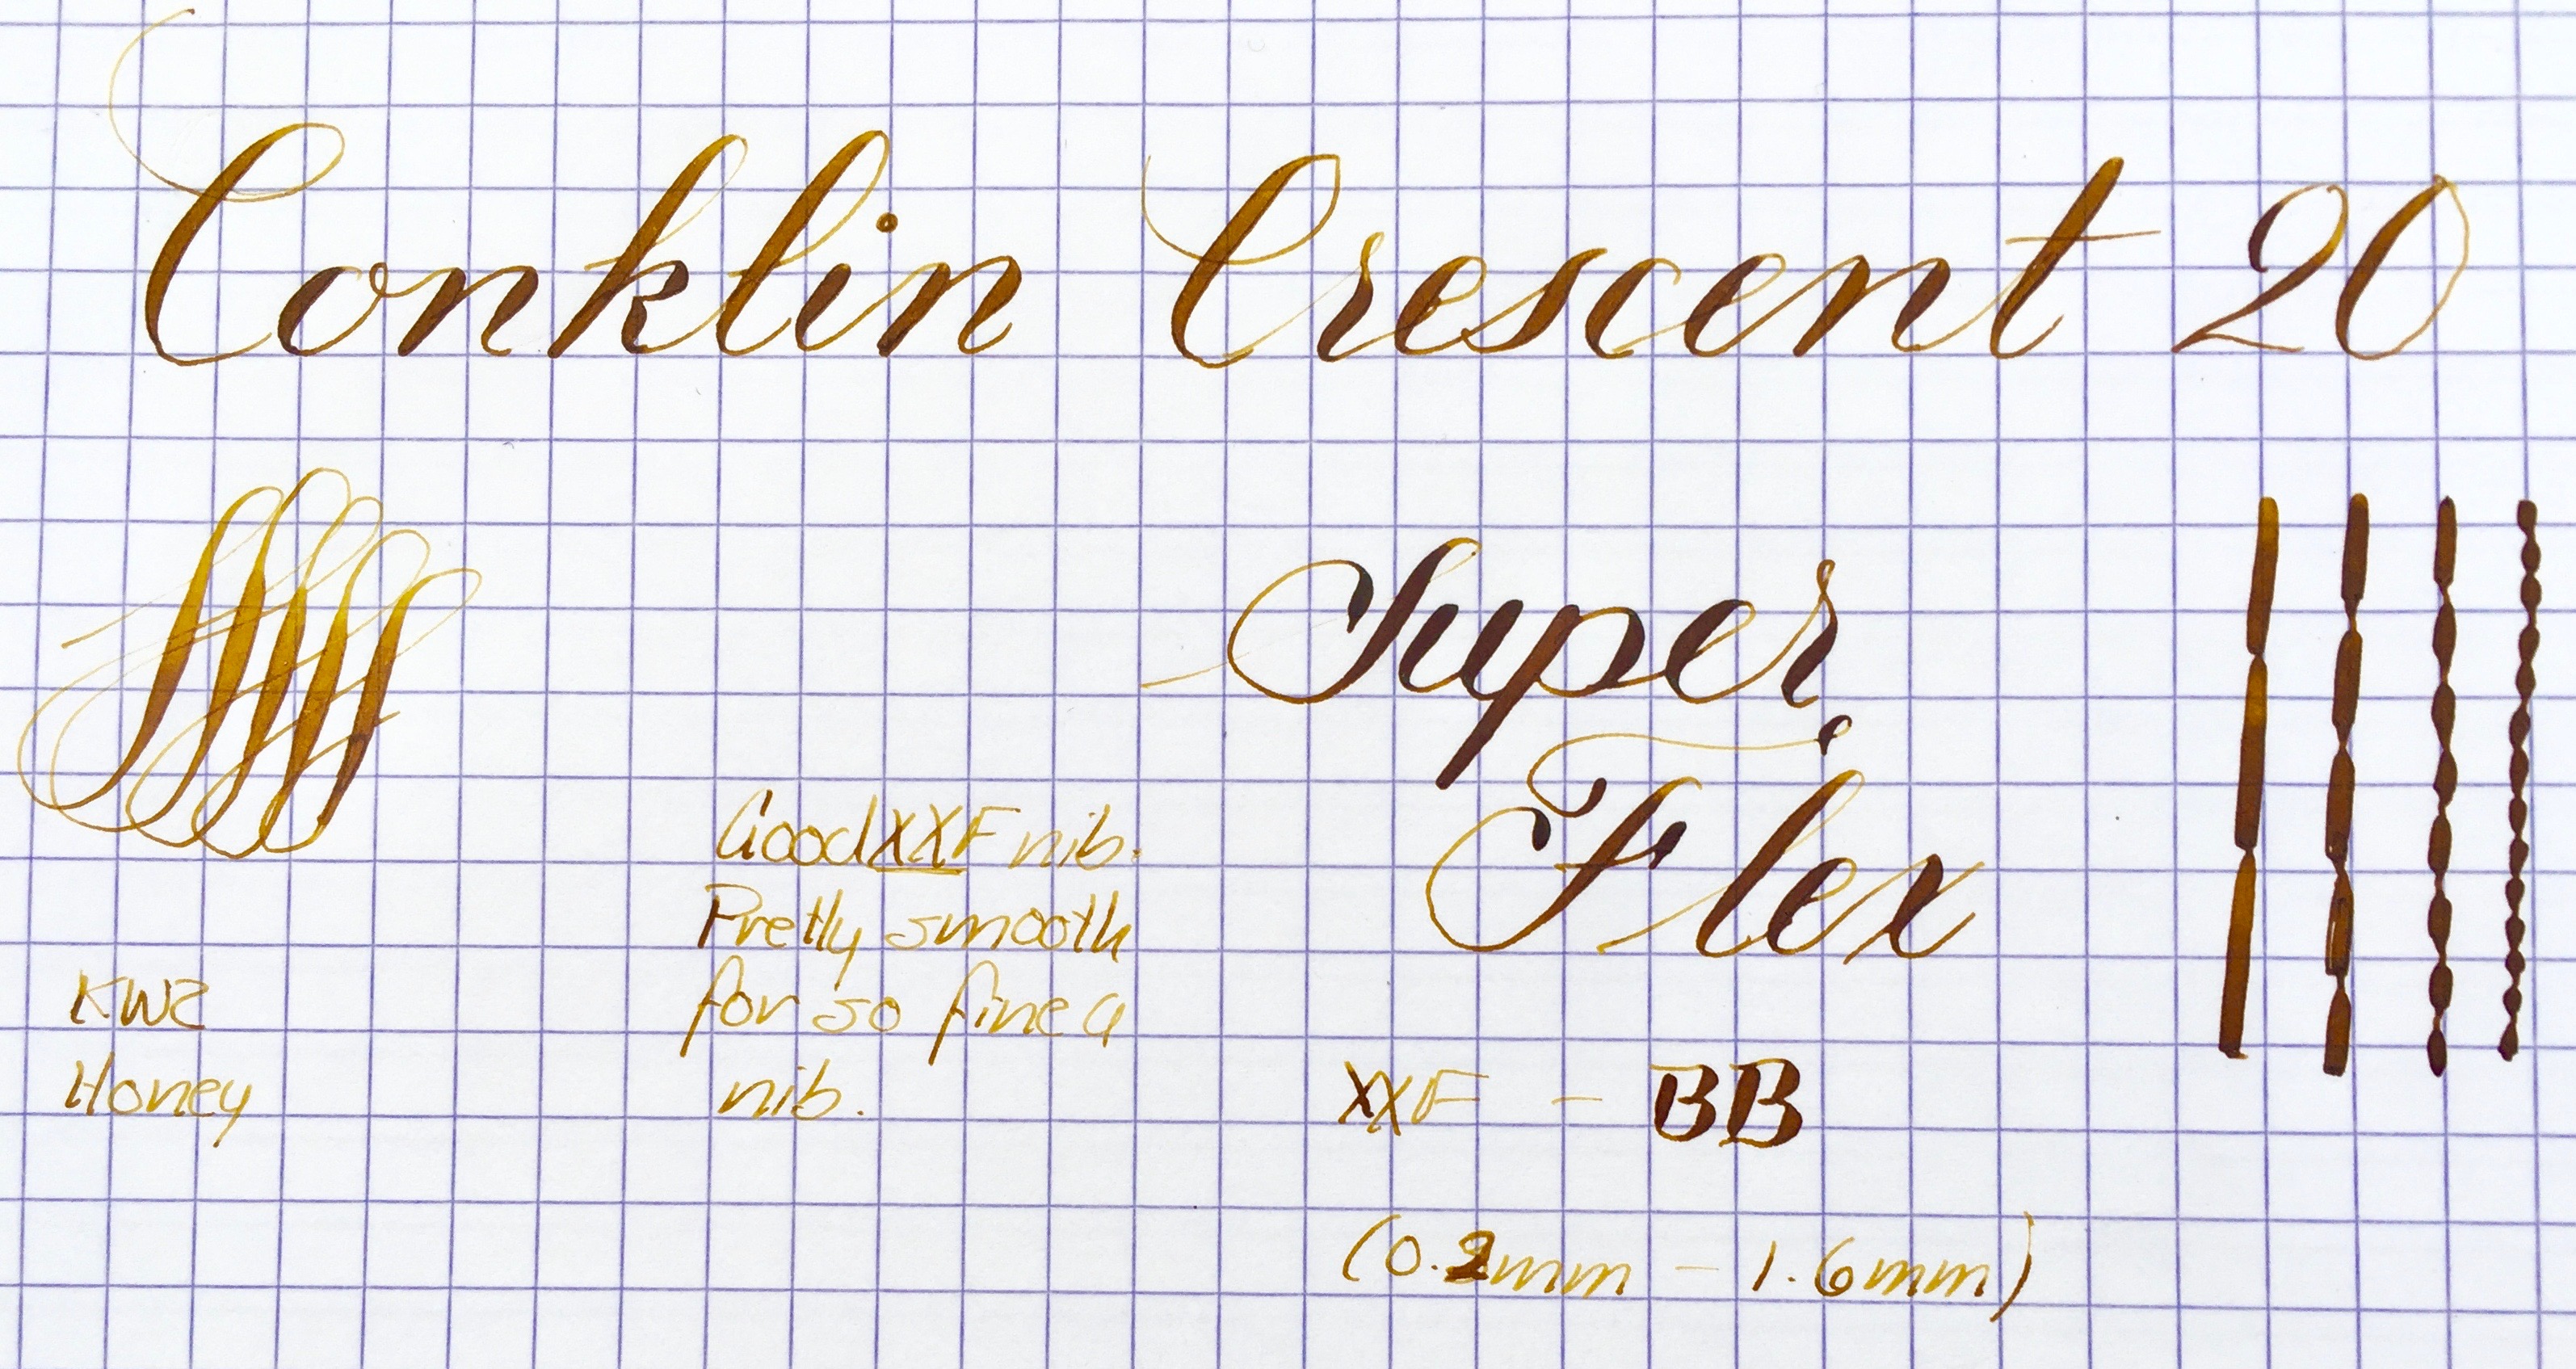 Conklin Crescent 20
Super
Flex
Good XXF nib.
Pretty smooth
for so fine a
nib.
KWZ
Honey
XXF – BB
(0.2mm – 1.6mm)